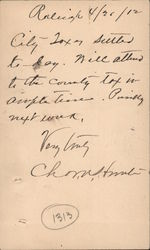 Raleigh 4/20/12
City Taxes settled
to-day. Will attend
to the County tax in
ample time. Possibly
next week.
Very truly
Chas. U.
1313